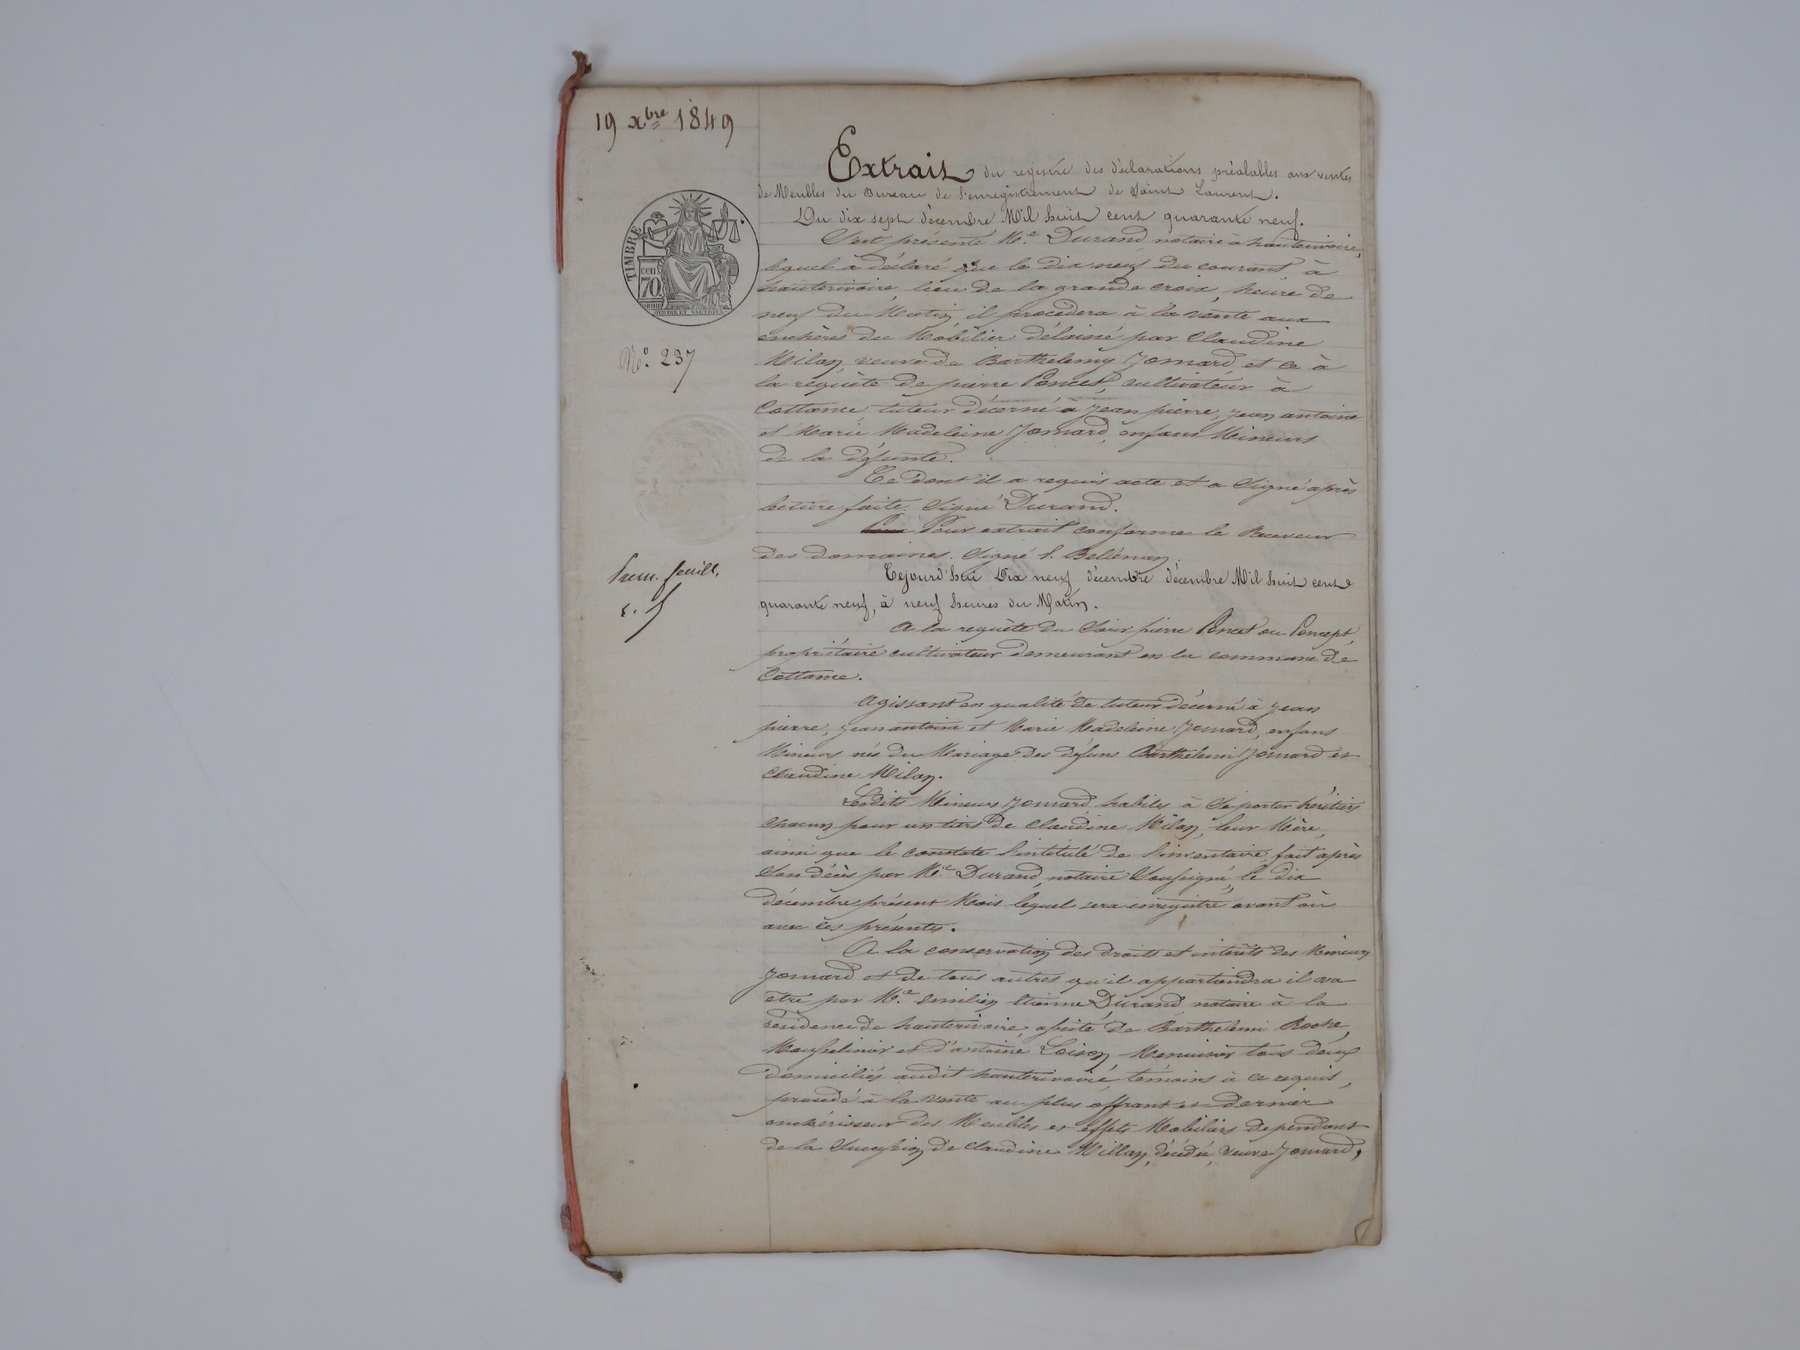 19 xbre 1849
Extrait du registre des déclarations préalables aux ventes
de Meubles du Bureau de l'enregistrement de Saint Laurent.
Du dix sept décembre Mil huit cent quarante neuf.
S'est présenté Me Durand notaire à hauterivoire,
lequel a déclaré que le dix neuf du courant, à
hauterivoire, lieu de la grande croix, heure de
neuf du Matin il procédera à la vente aux
enchères du Mobilier délaissé par Claudine
Milan, veuve de Barthélemy Jomard, et ce à
la requête de pierre Poncet, cultivateur à
Cottance, tuteur décerné à Jean pierre, Jean antoine
et Marie Madeleine Jomard, enfans Mineurs
de la défunte.
Ce dont il a requis acte et a Signé après
lecture faite. Signé Durand.
Pour extrait conforme le Receveur
des domaines. Signé
TIMBRE
cen
70.
No. 237
feuille,
Cejourd'hui Dix neuf décembre décembre Mil huit cent
quarante neuf, à neuf heures du Matin.
A la requête du Sieur pierre Poncet ou Poncept,
propriétaire cultivateur demeurant en la commune de
Cottance.
Agissant en qualité de tuteur décerné à Jean
pierre, Jean antoine et Marie Madeleine Jomard, enfans
Mineurs nés du Mariage des défuns Barthélemi Jomard et
Claudine Milan.
Lesdits Mineurs Jomard, habiles à Se porter héritiers
chacun pour un tiers de Claudine Milan, leur Mère,
ainsi que le constate l'intitulé de l'inventaire fait après
Son décès par Me Durand, notaire Soussigné, le dix
décembre présent Mois lequel sera enregistré avant ou
avec ces présentes.
A la conservation des droits et intérêts des Mineurs
Jomard et de tous autres qu'il appartiendra il va
être par Me. émilien étienne Durand notaire à la
résidence de hauterivoire, assisté de Barthélemi
et d'antoine Loison Menuisier tous deux
domiciliés audit hauterivoire, témoins à ce requis,
procédé à la vente au plus offrant et dernier
enchérisseur des Meubles et effets Mobiliers dépendant
de la Succession de Claudine Millan, décédée, veuve Jomard,